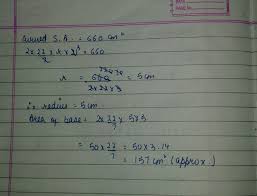 Curved S.A. = 660 cm²
2 x 22/7 x r x 21 = 660
r = = 5 cm
2 x 22 x 3
∴ radius = 5 cm
Area of base = 2 x 22/7 x 5 x 5
= 50 x 22/7 = 50 x 3.14
= 157 cm² (approx.)